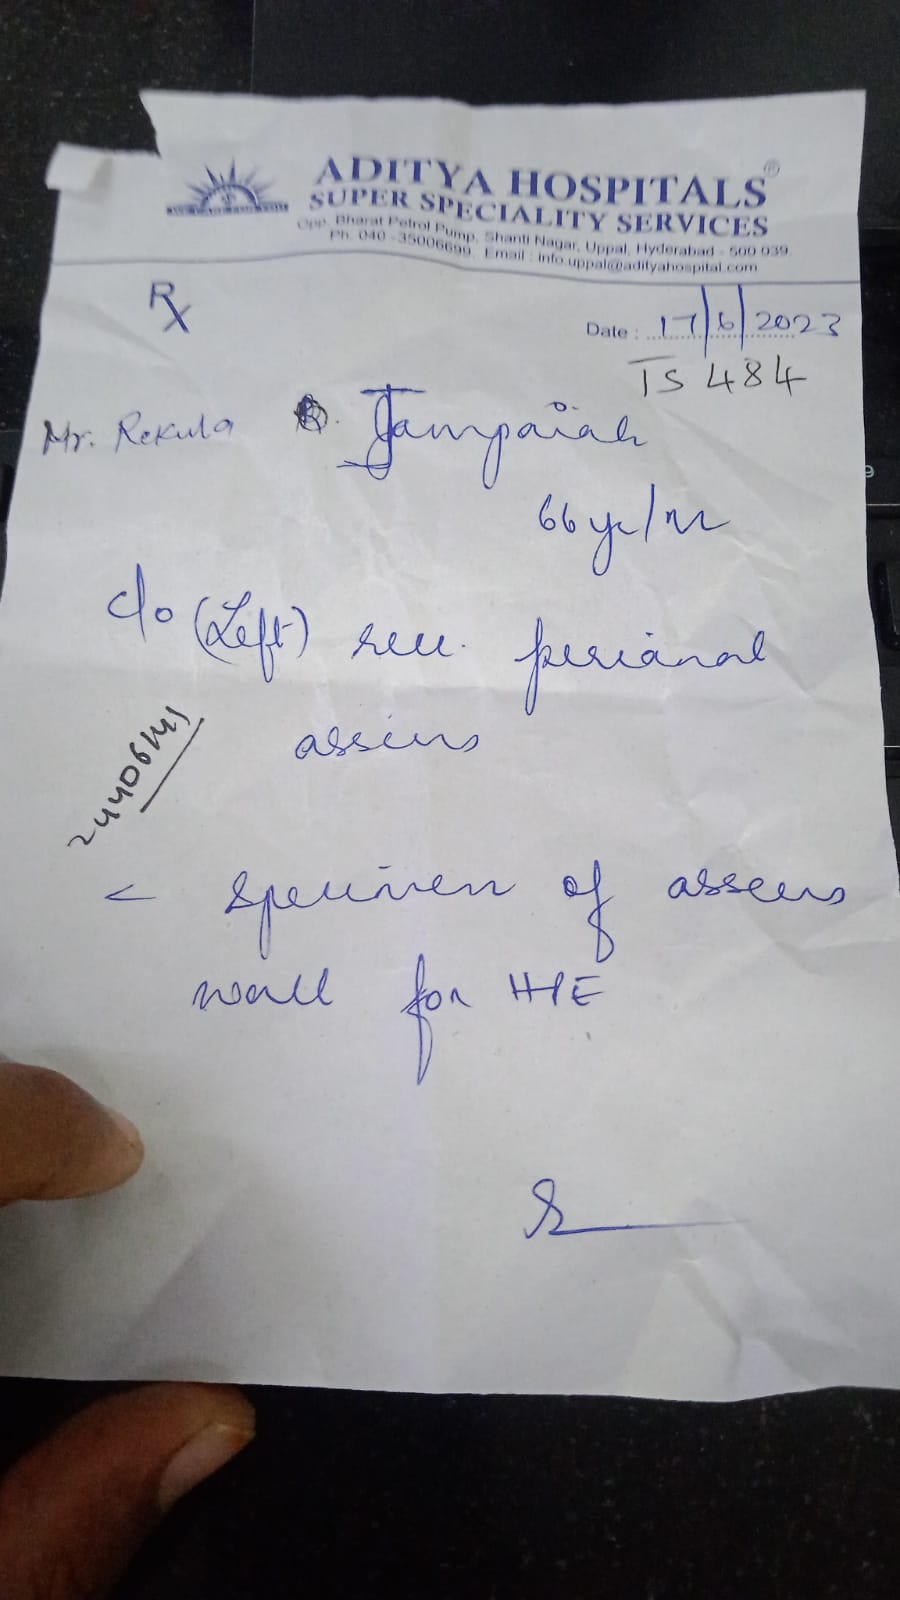 ADITYA HOSPITALS®
SUPER SPECIALITY SERVICES
Opp. Bharat Petrol Pump, Shanti Nagar, Uppal, Hyderabad - 500 039.
Ph. 040 -35006699, Email : info.uppal@adityahospital.com
Rx
Date : 17/6/2023
TS 484
Mr. Rekula Jampaiah
66yr/M
c/o (Left) rec. perianal
assess
< Specimen of assess
wall for HPE